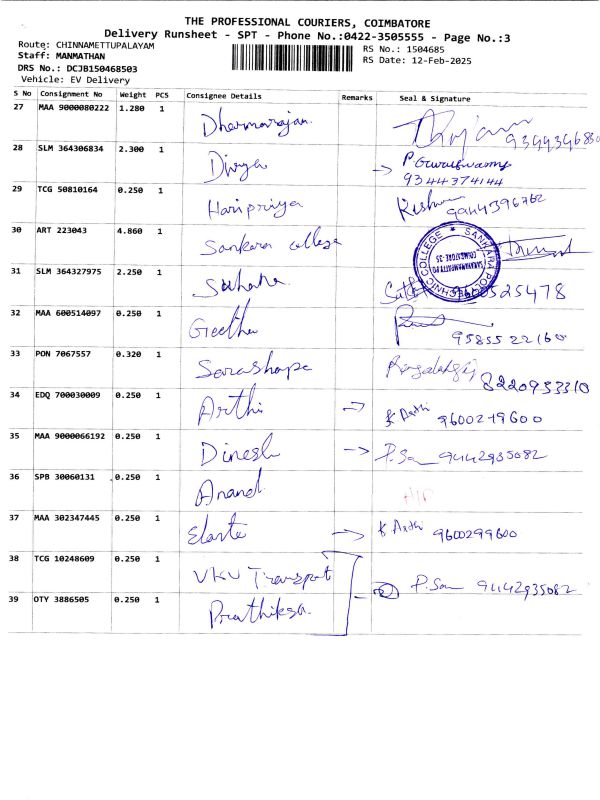 THE PROFESSIONAL COURIERS, COIMBATORE
Delivery Runsheet - SPT - Phone No.:0422-3505555 - Page No.:3
Route: CHINNAMETTUPALAYAM
Staff: MANMATHAN
DRS No.: DCJB150468503
Vehicle: EV Delivery
RS No.: 1504685
RS Date: 12-Feb-2025
S No Consignment No Weight PCS Consignee Details Remarks Seal & Signature
27 MAA 9000080222 1.280 1 Dharmarajan
28 SLM 364306834 2.300 1 Divya 9344374144
29 TCG 50810164 0.250 1 Haripriya 9944396762
30 ART 223043 4.860 1 Sankara college
SANKARA POLYTECHNIC COLLEGE
31 SLM 364327975 2.250 1 Suhana 9600525478
32 MAA 600514097 0.250 1 Geetha 9585522160
33 PON 7067557 0.320 1 8220933310
34 EDQ 700030009 0.250 1 Arthi 9600299600
35 MAA 9000066192 0.250 1 Dinesh 9442935082
36 SPB 30060131 0.250 1 Anand
37 MAA 302347445 0.250 1 9600299600
38 TCG 10248609 0.250 1 VKV Transport 9442935082
39 OTY 3886505 0.250 1 Prathiksa